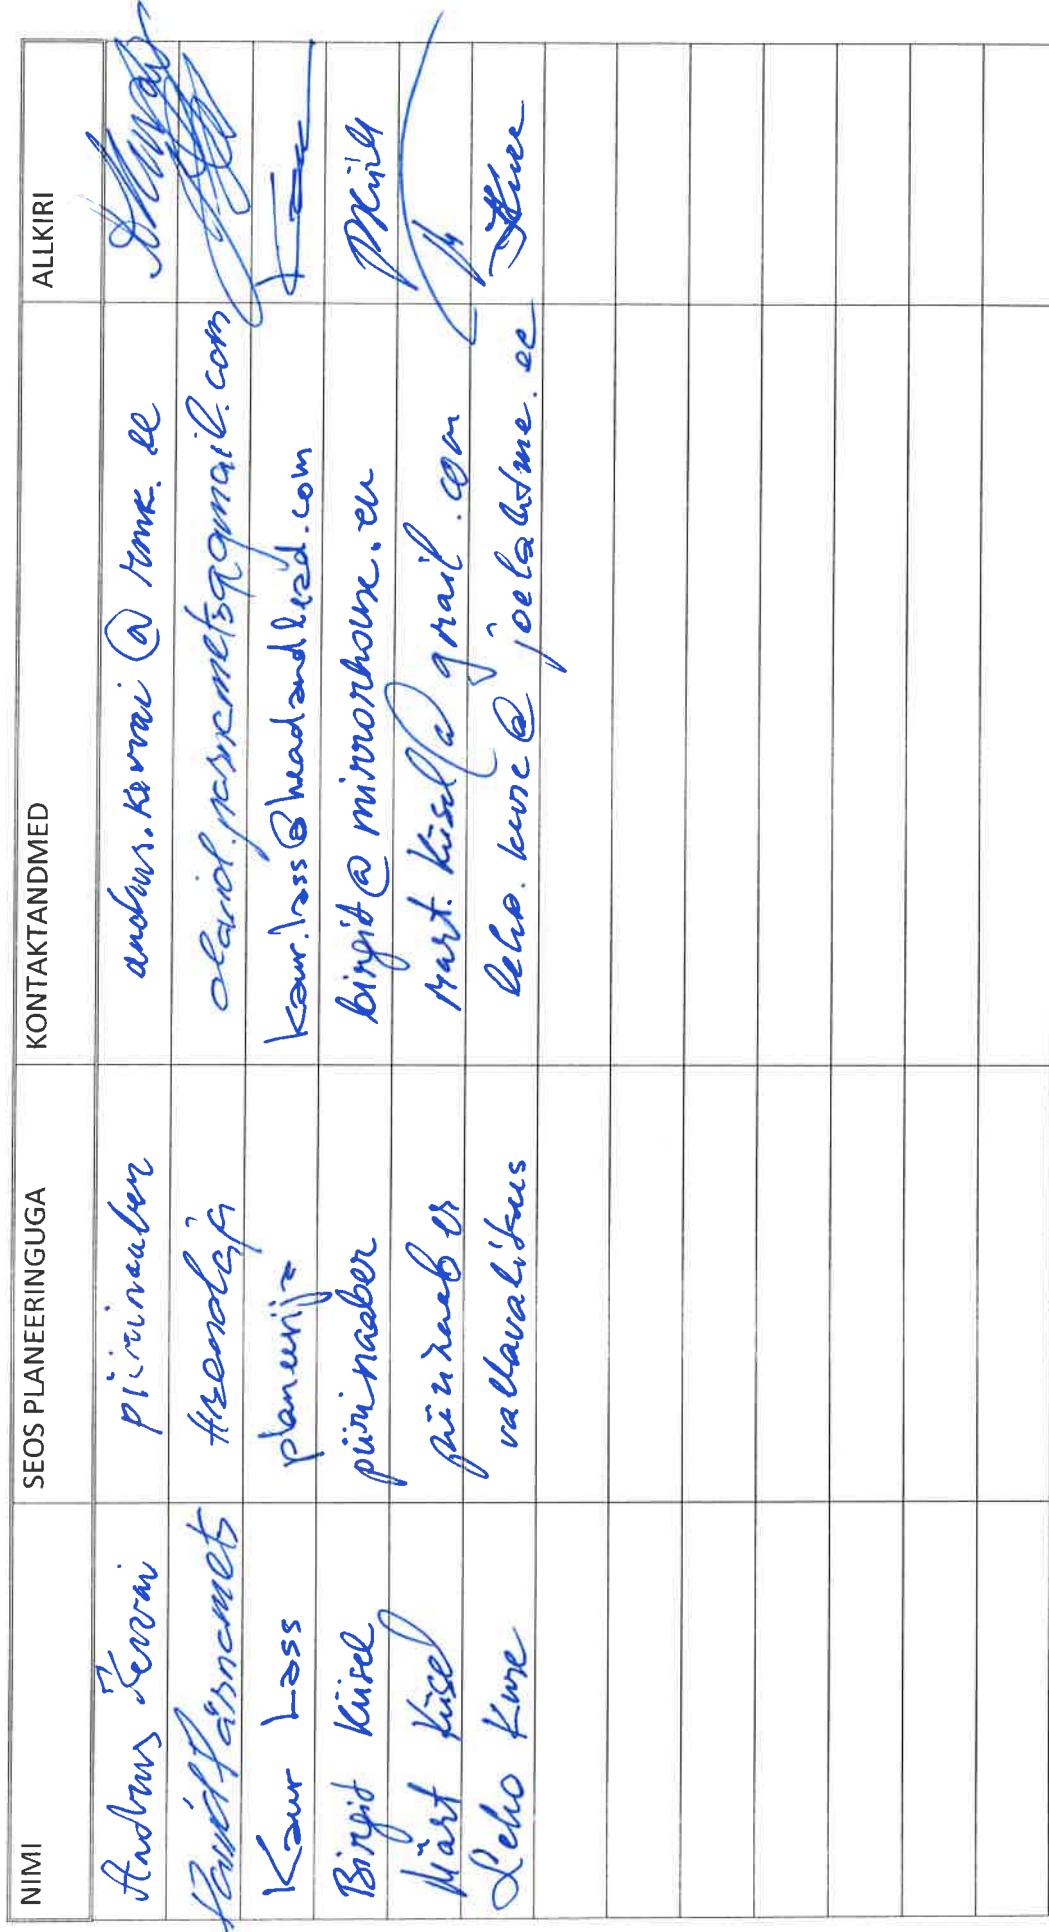 NIMI SEOS PLANEERINGUGA KONTAKTANDMED ALLKIRI
Andrus Kevvai piirinaaber andrus.kevvai @ rmk.ee
Taavid Pärnamets Arendaja
Kaur Lass planeerija kaur.lass@headandlead.com
Birgit Küisel piirinaaber birgit@mirrorhouse.eu
Märt Küisel piirinaaber mart.kiisel@gmail.com
Leho Kure vallavalitsus leho.kure@joelahtme.ee